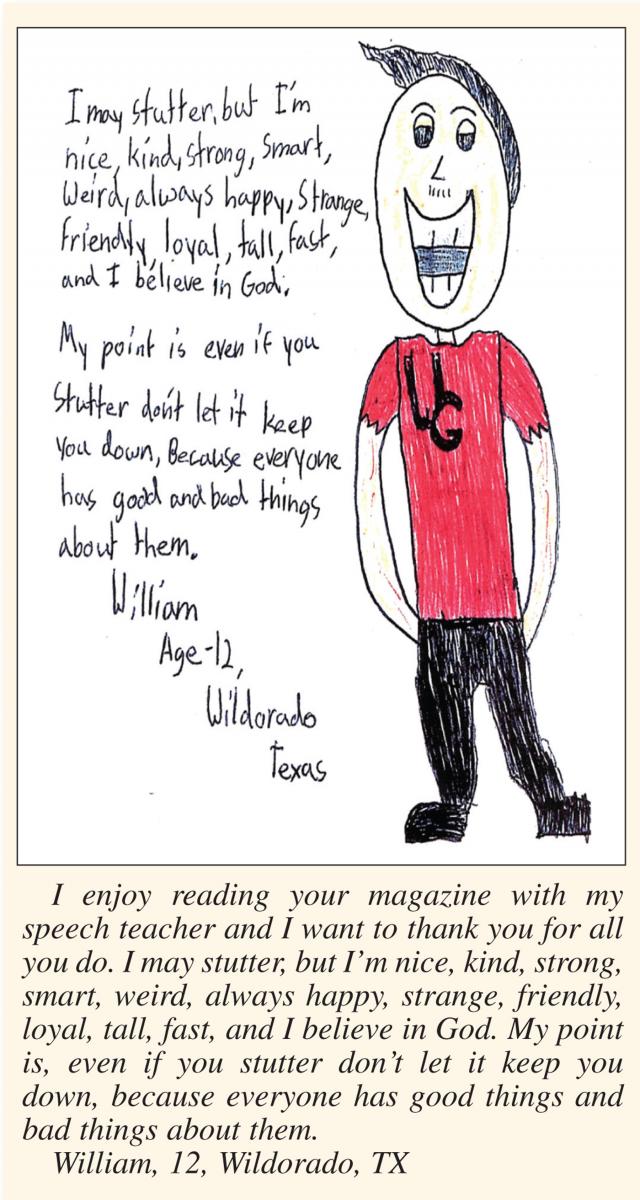 I may stutter, but I'm
nice, kind, strong, smart,
Weird, always happy, Strange,
friendly, loyal, tall, fast,
and I believe in God.
My point is even if you
Stutter don't let it keep
you down, Because everyone
has good and bad things
about them.
William
Age-12,
Wildorado
Texas
UG
I enjoy reading your magazine with my
speech teacher and I want to thank you for all
you do. I may stutter, but I’m nice, kind, strong,
smart, weird, always happy, strange, friendly,
loyal, tall, fast, and I believe in God. My point
is, even if you stutter don’t let it keep you
down, because everyone has good things and
bad things about them.
William, 12, Wildorado, TX